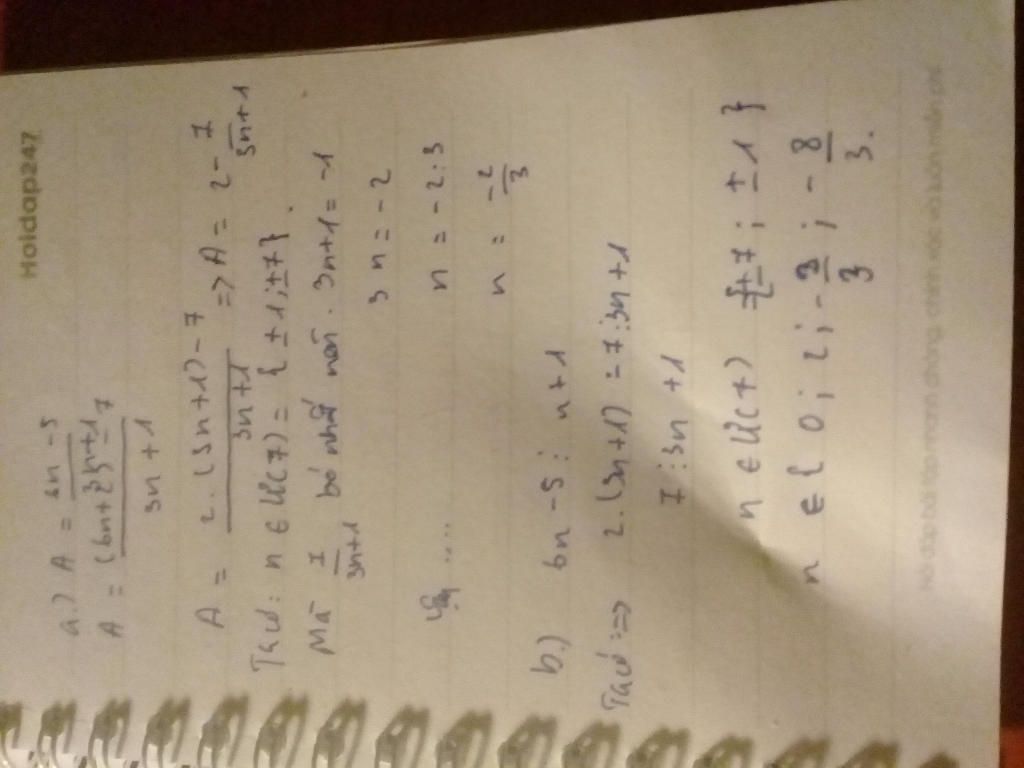 Hoidap247
a.) A = 6n - 5 / 3n + 1
A = (6n + 2) - 7 / 3n + 1
A = 2.(3n+1) - 7 / 3n+1 => A = 2 - 7/3n+1
Ta có: n ∈ Ư(7) = { ±1; ±7}.
Mà 7/3n+1 bé nhất nên. 3n+1 = -1
3n = -2
n = -2:3
Vậy ..... n = -2/3
b.) 6n - 5 ⋮ n+1
Ta có => 2.(3n+1) = 7 ⋮ 3n+1
7 ⋮ 3n + 1
n ∈ Ư(7) {±7 ; ±1 }
n ∈ { 0 ; 2 ; -2/3 ; -8/3.
Hỏi đáp bài tập nhanh chóng, chính xác và luôn miễn phí